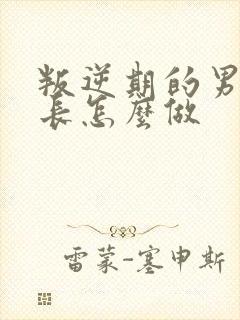 叛逆期的男
长怎麼做
雷蒙-塞申斯